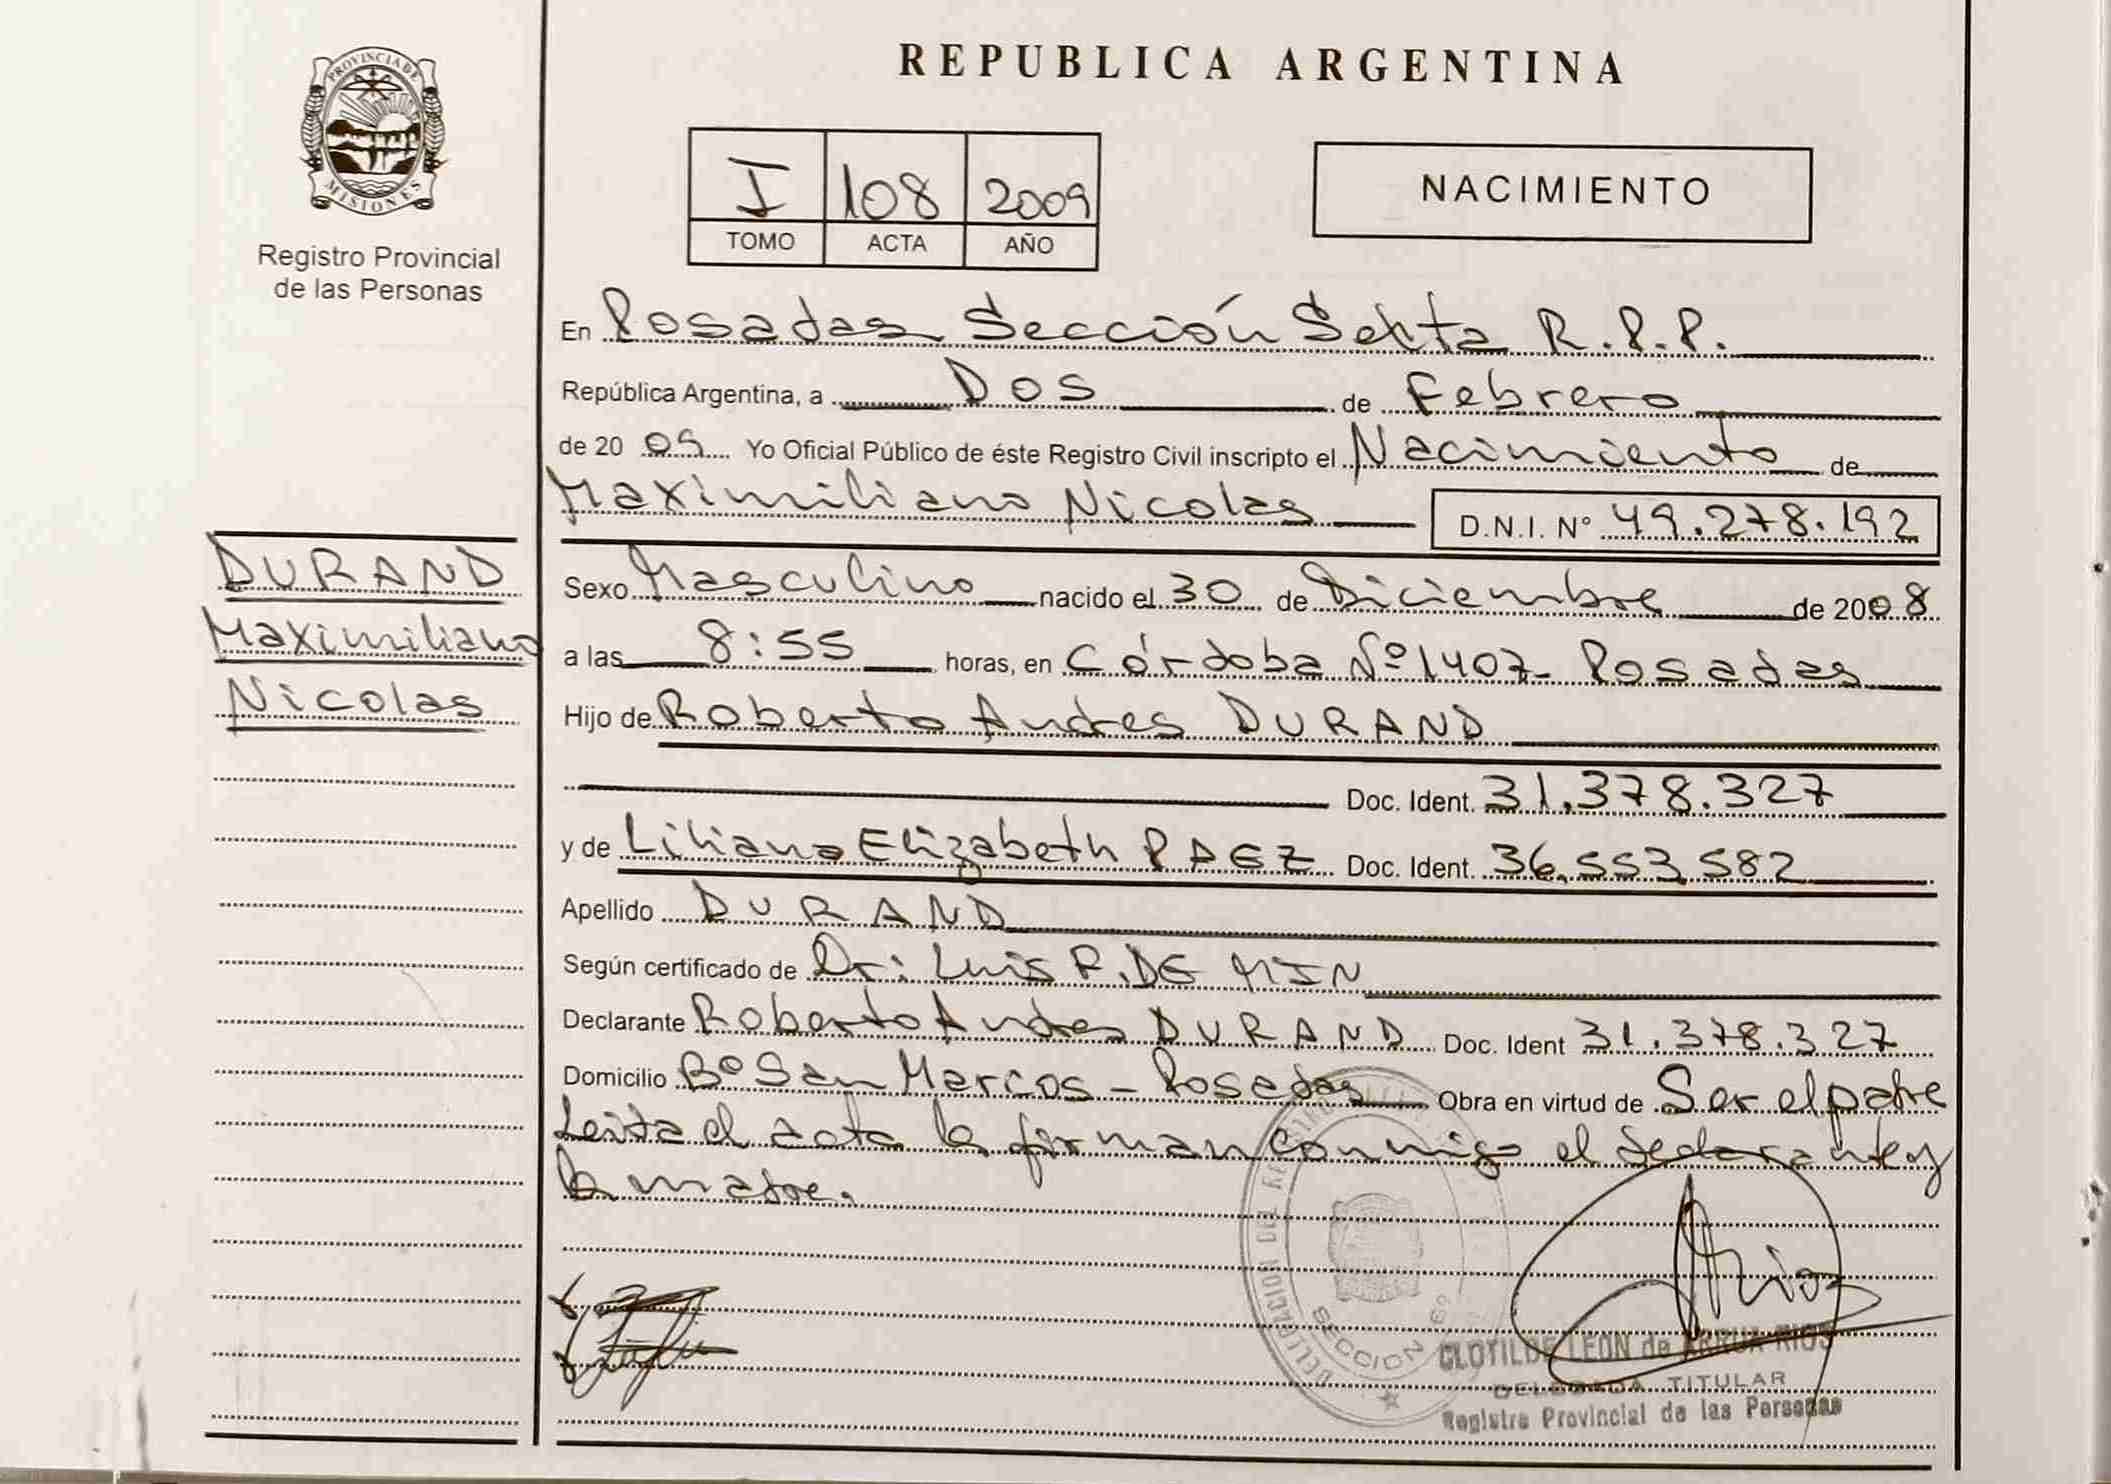 REPUBLICA ARGENTINA
PROVINCIA DE
MISIONES
Registro Provincial
de las Personas
I 108 2009
TOMO ACTA AÑO
NACIMIENTO
En Posadas Sección Sexta R.P.P.
República Argentina, a Dos de Febrero
de 20 09 Yo Oficial Público de éste Registro Civil inscripto el Nacimiento de
Maximiliano Nicolas D.N.I. Nº 49.278.192
DURAND
Maximiliano
Nicolas
Sexo Masculino nacido el 30 de Diciembre de 2008
a las 8:55 horas, en Córdoba Nº 1407- Posadas
Hijo de Roberto Andres DURAND
Doc. Ident. 31.378.327
y de Liliana Elizabeth PAEZ Doc. Ident. 36.553.582
Apellido DURAND
Según certificado de Dr: Luis R. DE MIN
Declarante Roberto Andres DURAND Doc. Ident 31.378.327
Domicilio Bº San Marcos - Posadas Obra en virtud de Ser el padre
Leída el acta la firman conmigo el declarante y
la madre.
DELEGACION DEL
SECCION 6º
Rios
CLOTILDE LEON de ARRUA RIOS
DELEGADA TITULAR
Registro Provincial de las Personas